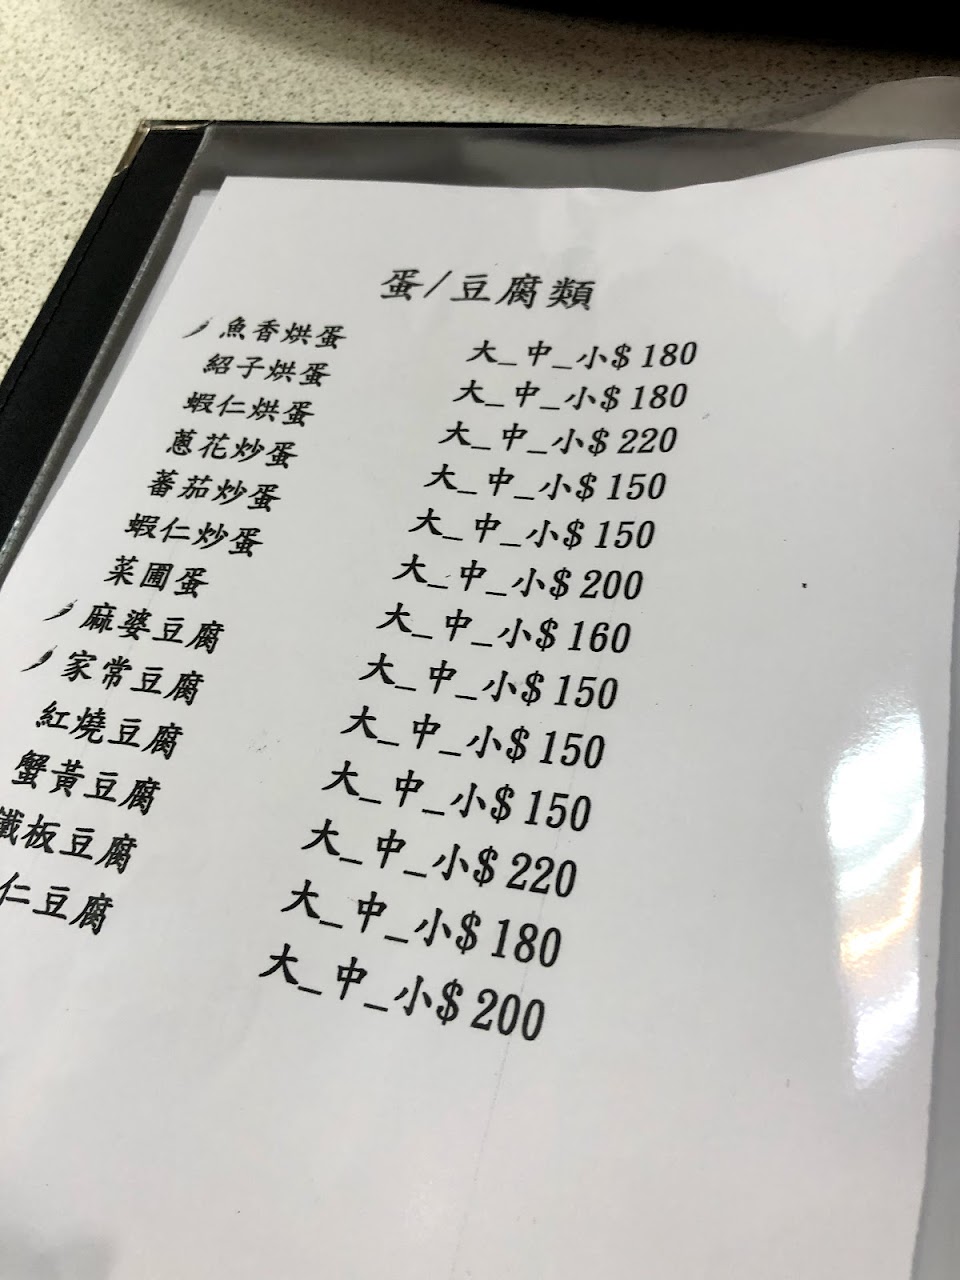 蛋/豆腐類
魚香烘蛋 大_中_小$180
紹子烘蛋 大_中_小$180
蝦仁烘蛋 大_中_小$220
蔥花炒蛋 大_中_小$150
蕃茄炒蛋 大_中_小$150
蝦仁炒蛋 大_中_小$200
菜圃蛋 大_中_小$160
麻婆豆腐 大_中_小$150
家常豆腐 大_中_小$150
紅燒豆腐 大_中_小$150
蟹黃豆腐 大_中_小$220
鐵板豆腐 大_中_小$180
仁豆腐 大_中_小$200